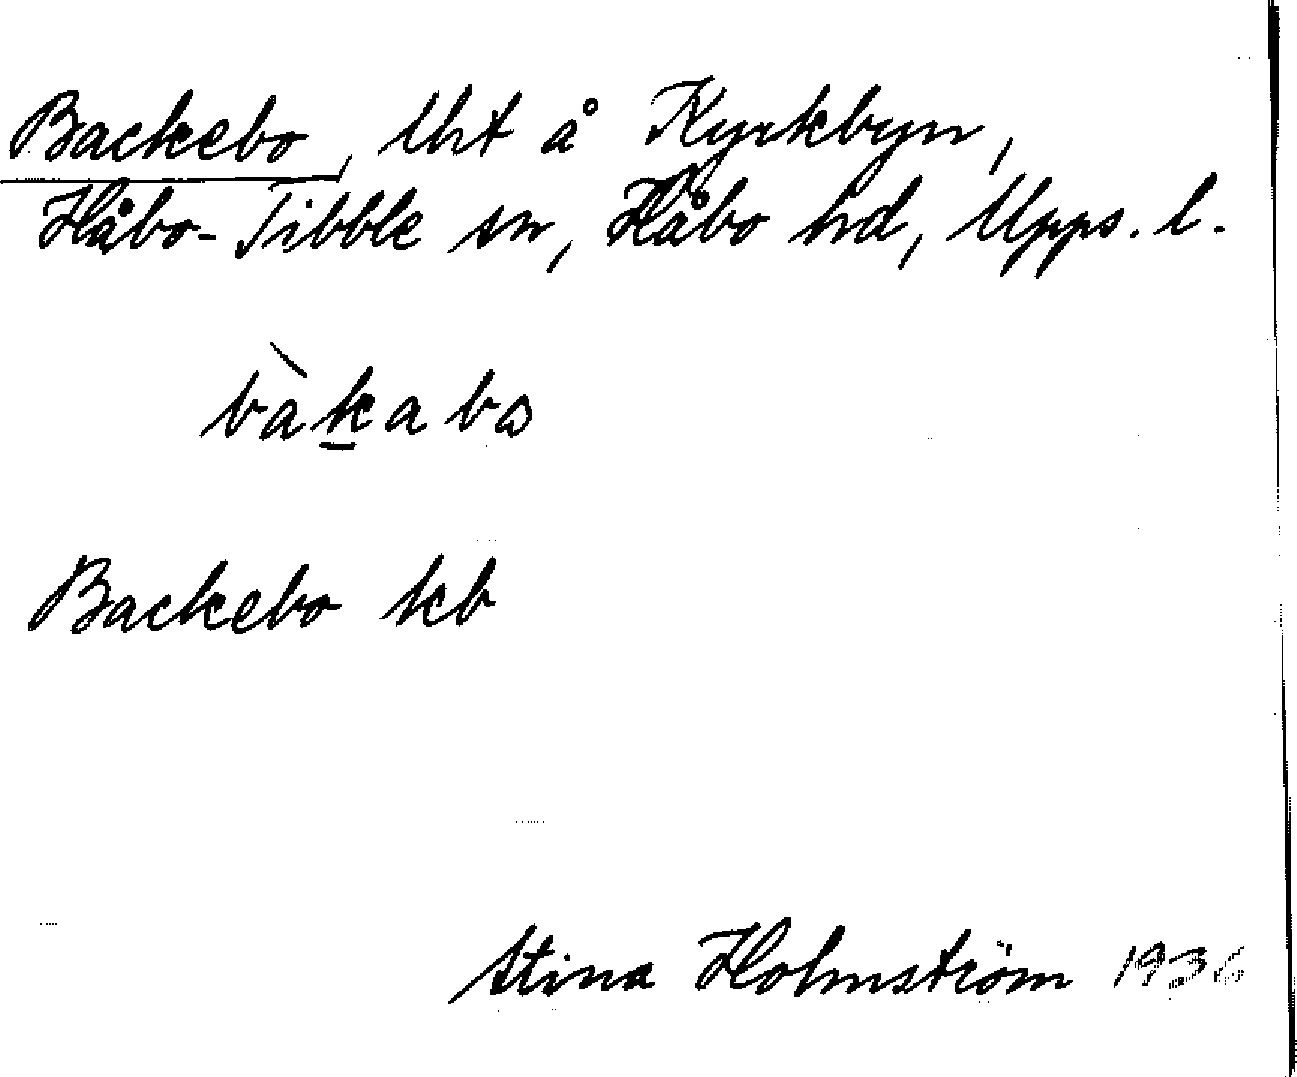 Backebo, lht å Kyrkbyn,
Håbo-Tibble sn, Håbo hd, Upps. l.
bàkabo
Backebo kb
Stina Holmström 1936